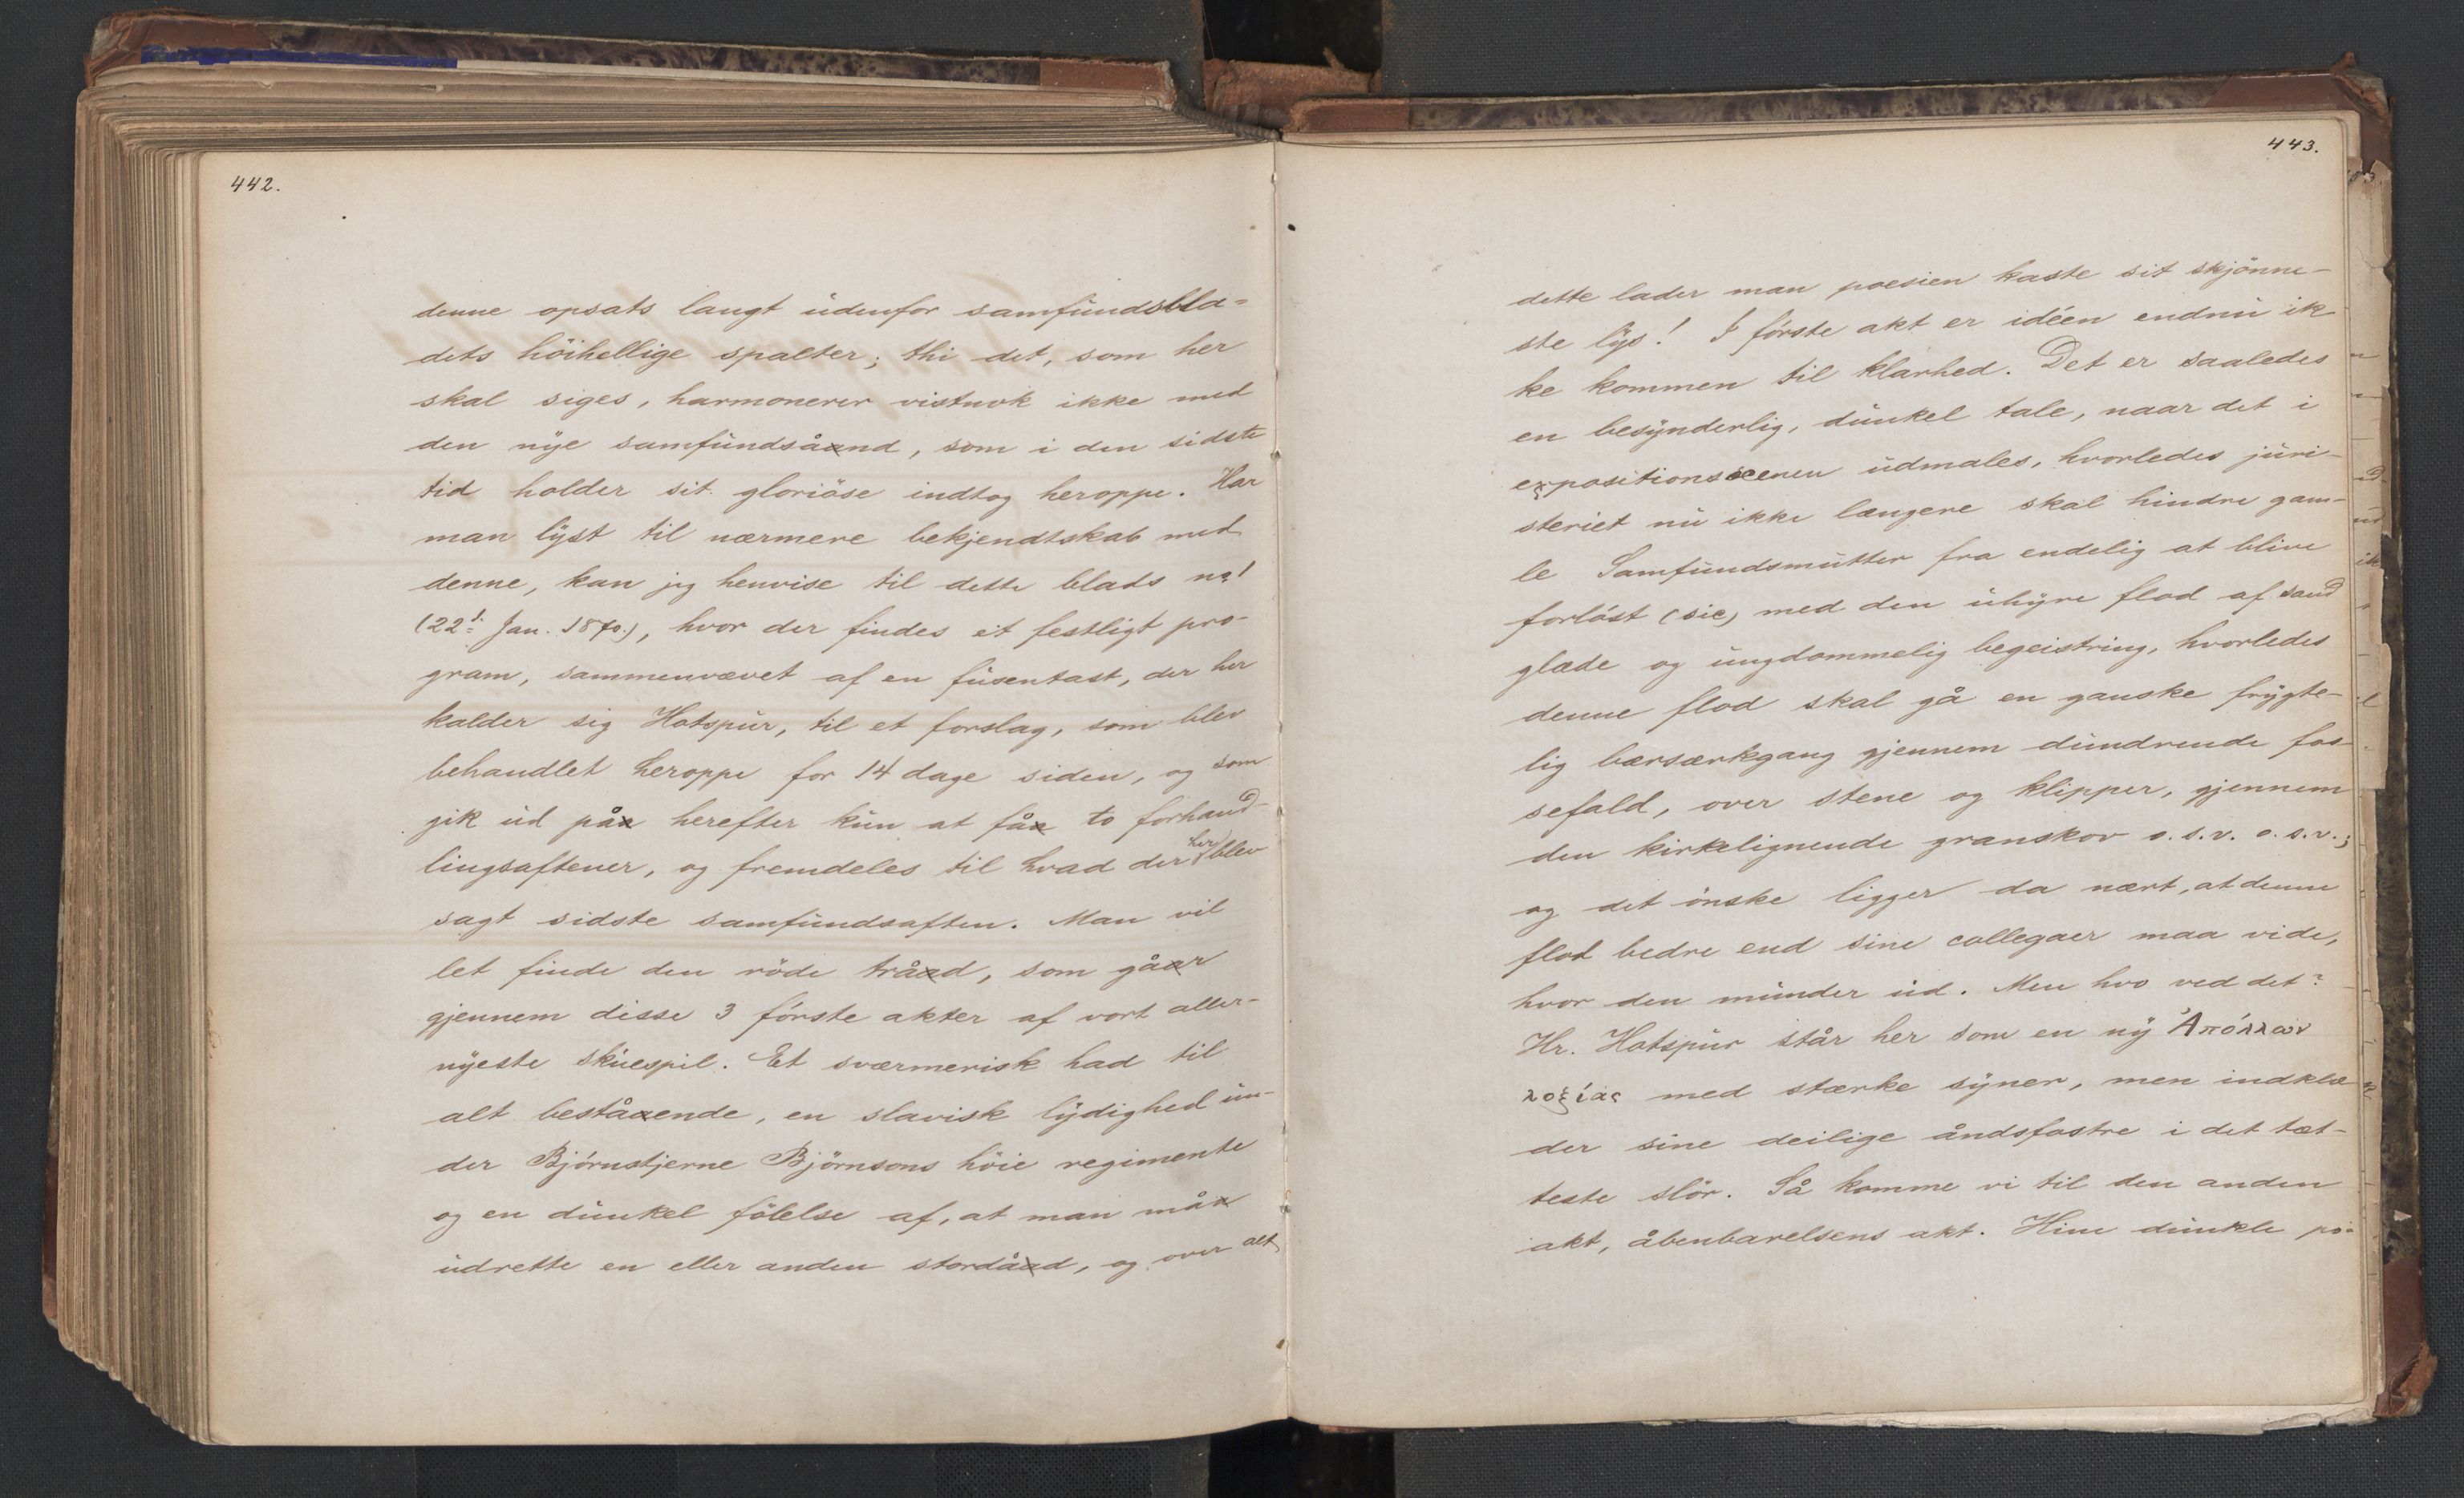 442.
denne opsats langt udenfor samfundsbla-
dets höihellige spalter; thi det, som her
skal siges, harmonerer vistnok ikke med
den nye samfundsånd, som i den sidste
tid holder sit gloriöse indtog heroppe. Har
man lyst til nærmere bekjendtskab med
denne, kan jeg henvise til dette blads no. 1
(22d Jan. 1870.), hvor der findes et festligt pro-
gram, sammenvævet af en fusentast, der her
kalder sig Hotspur, til et forslag, som blev
behandlet heroppe for 14 dage siden, og som
gik ud på herefter kun at få to forhand-
lingsaftener, og fremdeles til hvad der her blev
sagt sidste samfundsaften. Man vil
let finde den röde tråd, som går
gjennem disse 3 förste akter af vort aller-
nyeste skuespil. Et sværmerisk had til
alt bestående, en slavisk lydighed un-
der Björnstjerne Björnsons höie regimente
og en dunkel fölelse af, at man må
udrette en eller anden stordåd, og over alt
443.
dette lader man poesien kaste sit skjönne-
ste lys! I förste akt er idéen endnu ik
ke kommen til klarhed. Det er saaledes
en besynderlig, dunkel tale, naar det i
expositionsscenen udmales, hvorledes juri-
steriet nu ikke længere skal hindre gam-
le Samfundsmutter fra endelig at blive
forlöst (sic) med den uhyre flod af sand
glæde og ungdommelig begeistring, hvorledes
denne flod skal gå en ganske frygte-
lig bærsærkgang gjennem dundrende fos-
sefald, over stene og klipper, gjennem
den kirkelignende granskov o.s.v. o.s.v.;
og det önske ligger da nært, at denne
flod bedre end sine collegaer maa vide,
hvor den munder ud. Men hvo ved det?
Hr. Hotspur står her som en ny Ἀπόλλων
λοξίας med stærke syner, men indklæ
der sine deilige åndsfostre i det tæt-
teste slör. Så komme vi til den anden
akt, åbenbarelsens akt. Hine dunkle po-